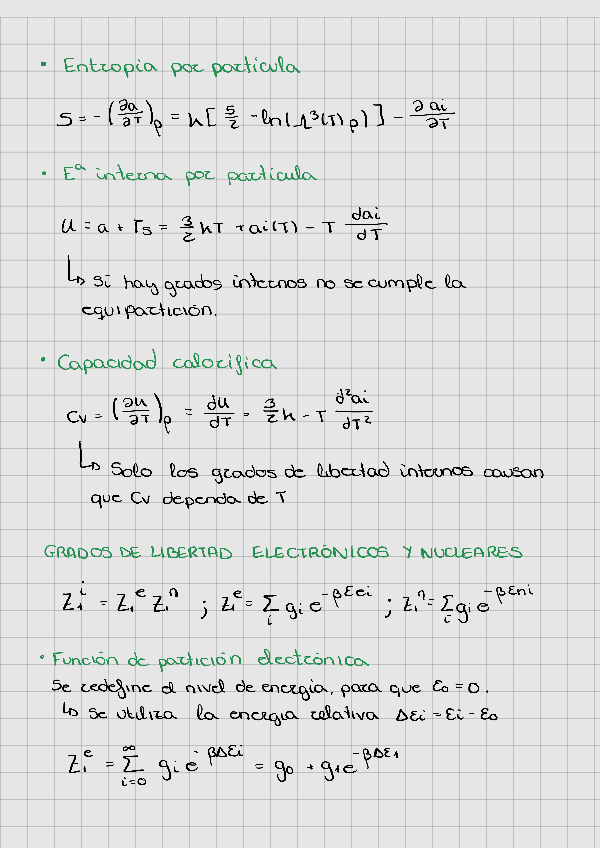 • Entropia por partícula
S = -(∂a/∂T)ρ = k[5/2 - ln(Λ³(T)ρ)] - ∂ai/∂T
• Eª interna por partícula
u = a + Ts = 3/2 kT + ai(T) - T dai/dT
↳ Si hay grados internos no se cumple la
equipartición.
• Capacidad calorífica
Cv = (∂u/∂T)ρ = du/dT = 3/2 k - T d²ai/dT²
↳ Solo los grados de libertad internos causan
que Cv dependa de T
GRADOS DE LIBERTAD ELECTRÓNICOS Y NUCLEARES
Z₁ⁱ = Z₁ᵉ Z₁ⁿ ; Z₁ᵉ = Σᵢ gi e^(-βεei) ; Z₁ⁿ = Σᵢ gi e^(-βεni)
• Función de partición electrónica
Se redefine el nivel de energía, para que ε₀ = 0.
↳ Se utiliza la energia relativa Δεi = εi - ε₀
Z₁ᵉ = Σ_(i=0)^∞ gi e^(-βΔεi) = g₀ + g₁e^(-βΔε₁)